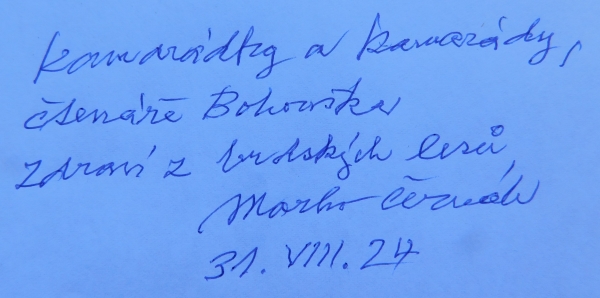 kamarádky a kamarády,
čtenáře Bohouška
zdraví z brdských lesů
Marko Čermák
31. VIII. 24